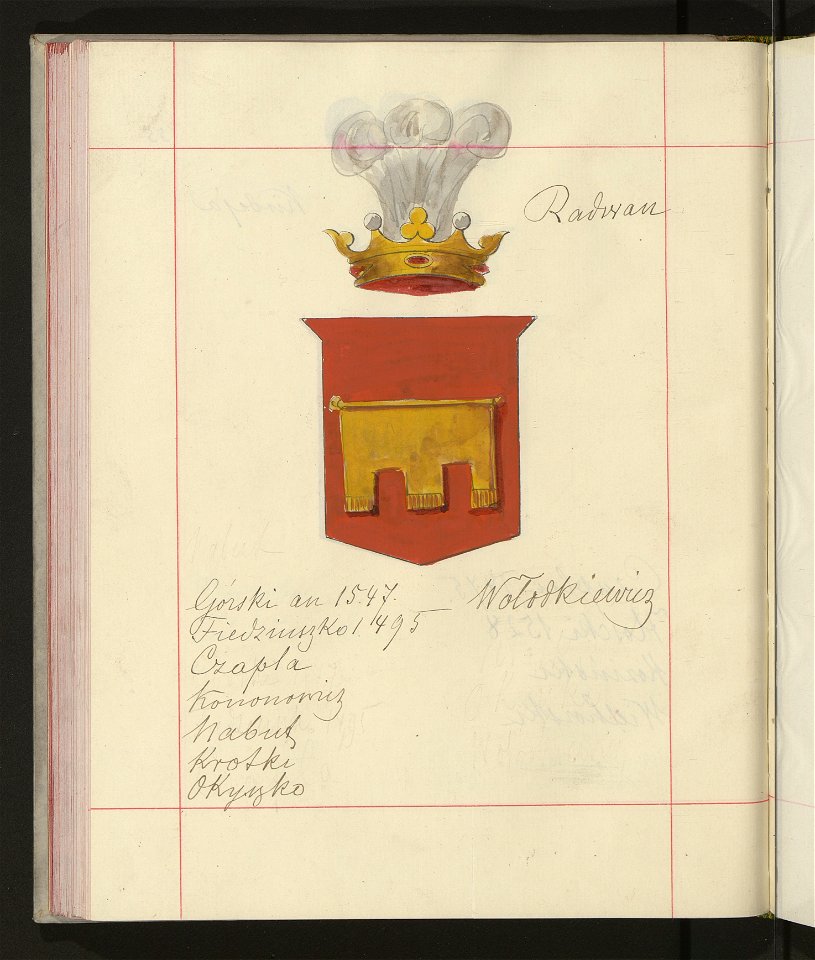 Radwan
Górski an 1547.
Fiedziuszko 1495
Czapla
Kononowicz
Nabut
Krotki
Okyszko
Wołodkiewicz